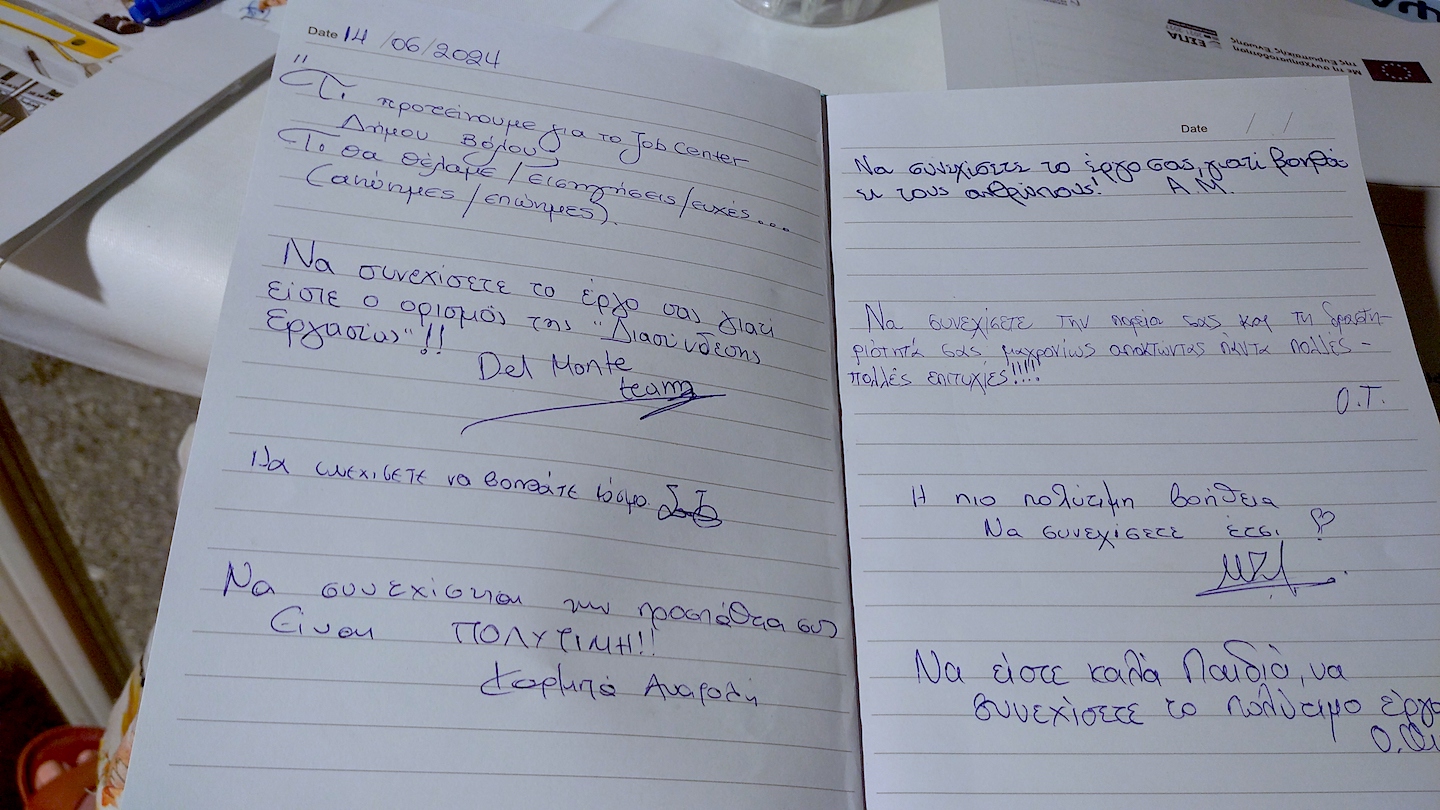 Date 14/06/2024
"Τι προτείνουμε για το Job Center
Δήμου Βόλου
Τι θα θέλαμε/εισηγήσεις/ευχές....
(ανώνυμες/επώνυμες).
Να συνεχίσετε το έργο σας γιατί
είστε ο ορισμός της "Διασύνδεσης
Εργασίας"!!
Del Monte
team
Να συνεχισετε να βοηθάτε κόσμο
Να συνεχίσται την προσπάθεια σας
Είναι ΠΟΛΥΤΙΜΗ!!
Date / /
Να συνεχίσετε το έργο σας, γιατί βοηθά
ει τους ανθρώπους! Α.Μ.
Να συνεχίσετε την πορεία σας και τη δραστη-
ριότητά σας μακρονίως αποκτώντας πάντα πολλές-
πολλές επιτυχίες!!!!!
Ο.Τ.
Η πιο πολύτιμη βοήθεια
Να συνεχίσετε έτσι
Να είστε καλά Παιδιά, να
συνεχίσετε το πολύτιμο έργο
ΕΣΠΑ
Με τη συγχρηματοδότηση
της Ευρωπαϊκής Ένωσης